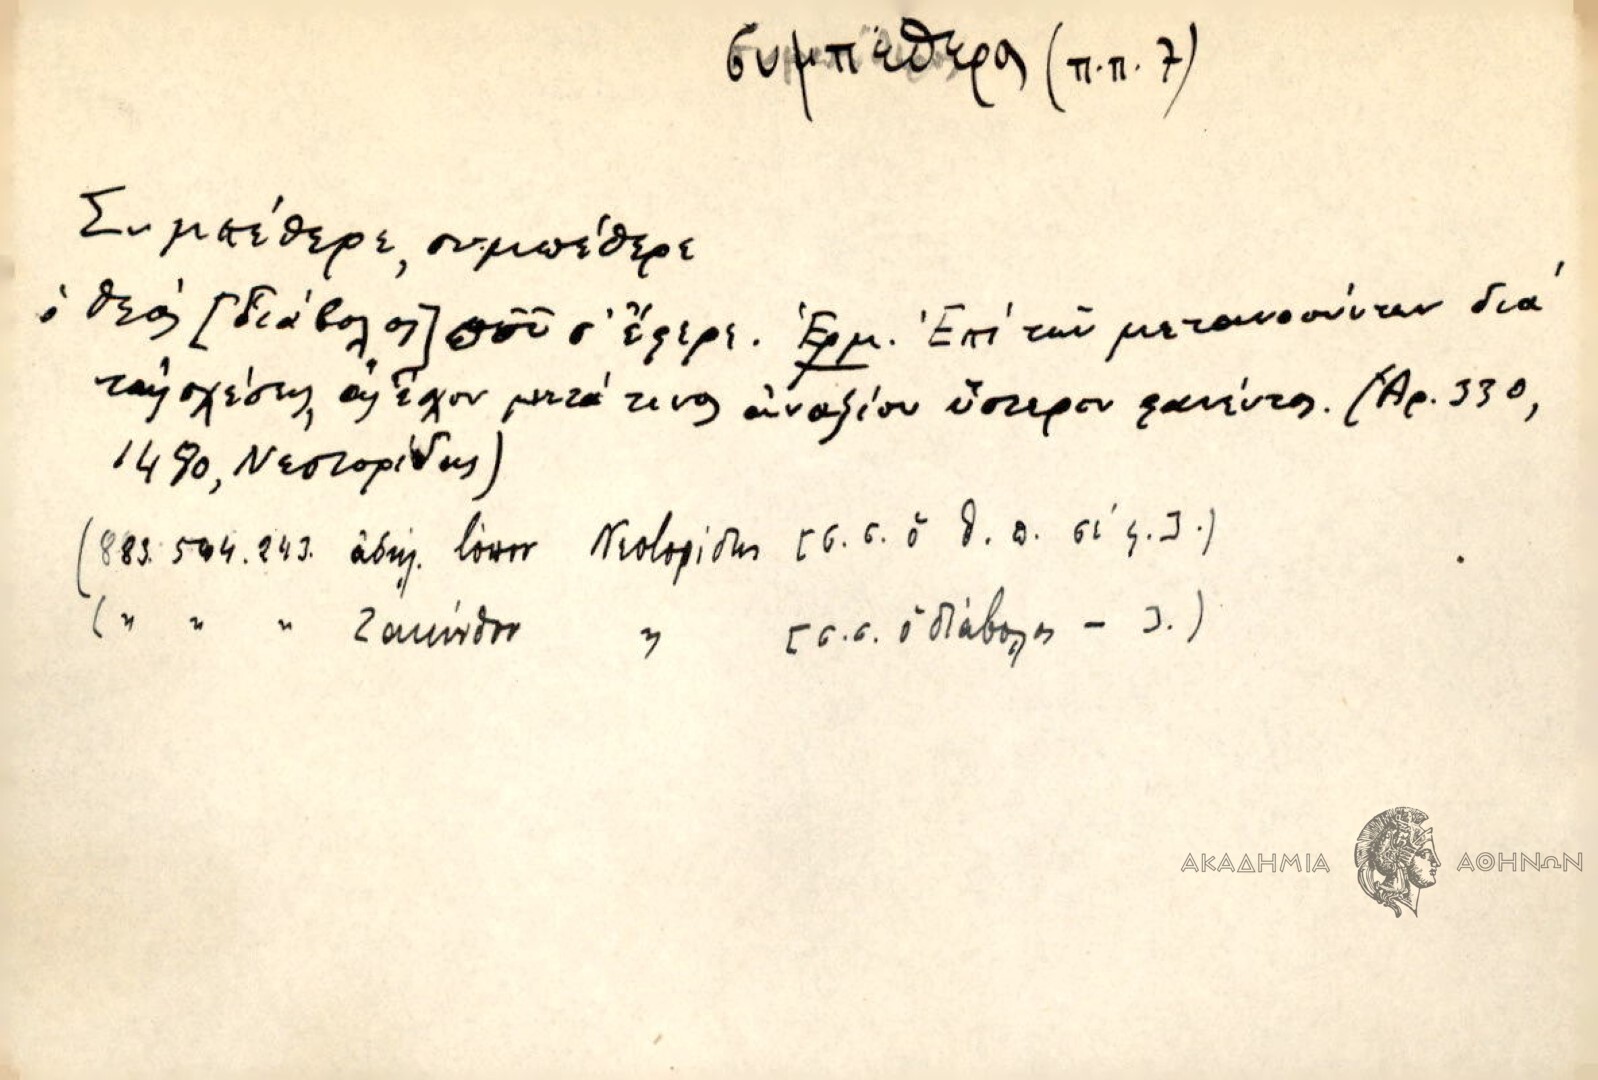 συμπέθερος (π.π. 7)
Συμπέθερε, συμπέθερε
ὁ θεός [διάβολος] ποῦ σ' ἔφερε. Ἑρμ. Ἐπὶ τῶν μετανοούντων διά
τάς σχέσεις, ἅς εἶχον μετά τινος ἀναξίου ὕστερον φανέντος. (Ἀρ. 330,
1490, Νεστορίδης)
(883. 544. 243. ἀδήλ. τόπου Νεστορίδης [σ. σ. ὁ θ. π. σέ ἔ.].)
(" " " Ζακύνθου " [σ.σ. ὁ διάβολος - ].)
ΑΚΑΔΗΜΙΑ ΑΘΗΝΩΝ